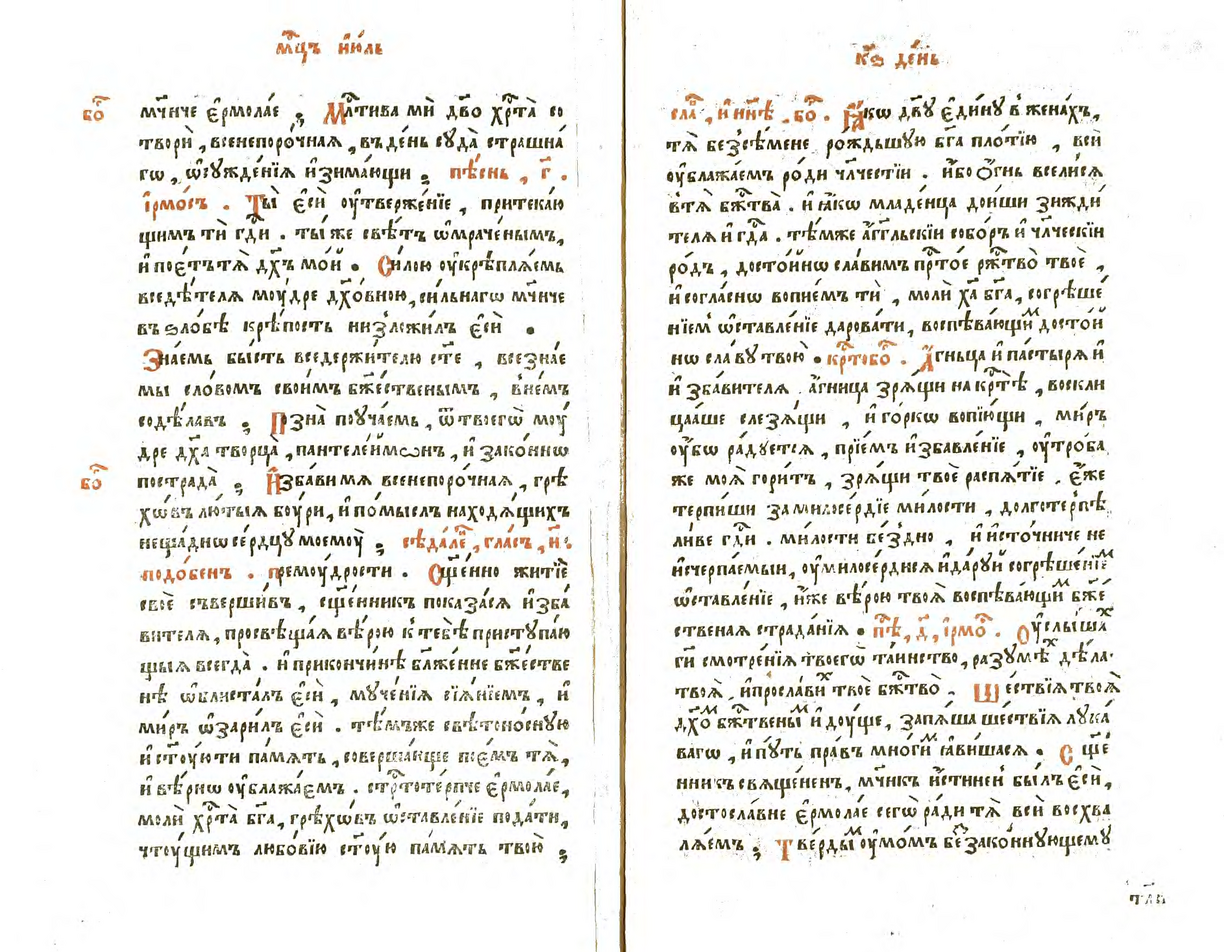 мцⷭ҇ъ и҆ю́ль
бо҃ мч҃нче є҆рмола́е ; Мл҃тива мѝ дв҃о хрⷭ҇та̀ со
творѝ , всенепоро́чная , въ де́нь сꙋда̀ страшна́
гѡ , ѡ҆сꙋжде́нїя и҆зима́ющи ; пѣ́снь , г҃ .
і҆рмо́съ . Ты̀ є҆сѝ ᲂу҆твержде́нїе , притекаю́
щимъ тѝ гдⷭ҇и . ты́ же свѣ́тъ ѡ҆мраче́нымъ ,
и҆ пое́тъ тѧ̀ дх҃ъ мо́й . Си́лою ᲂу҆крѣплѧ́емь
вседѣ́телѧ моу́дре дх҃о́вною , си́льнагѡ мч҃нче
въ ѕло́бѣ крѣ́пость низложи́лъ є҆сѝ .
Зна́емь бы́сть вседержи́телю ст҃е , всезна́е
мы словомъ свои́мъ бж҃е́ственымъ , в не́мъ
содѣ́лавъ ; Позна̀ поуча́емь , ѿ твоегѡ̀ моу́
дре дх҃а творца̀ , пантелеи́мѡнъ , и҆ зако́ннѡ
бо҃ пострада̀ ; И҆зба́ви мѧ всенепоро́чная , грѣ
хѡ́въ лю́тыѧ боу́ри , и҆ по́мыслъ находѧ́щихъ
неща́днѡ се́рдцꙋ моемоу̀ ; сѣда́ле , гла́съ , и҃ :
подо́бенъ . премоу́дрости . Сщ҃е́нно житїѐ
своѐ съверши́въ , сщ҃е́нникъ показа́сѧ и҆зба́
вителѧ , просвѣща́ѧ вѣ́рою к тебѣ̀ пристꙋпаю́
щыѧ всегда̀ . и҆ прикончи́нѣ блаже́нне бж҃е́стве
нѣ ѡ҆блиста́лъ є҆сѝ , мꙋче́нїѧ сїѧ́нїемъ , и҆
ми́ръ ѡ҆зари́лъ є҆сѝ . тѣ́мъже свѣтоно́снꙋю
и҆ ст҃оу́ю ти па́мѧть , соверша́юще пое́мъ тѧ̀ ,
и҆ вѣ́рнѡ ᲂу҆блажа́емъ . стрⷭ҇тоте́рпче є҆рмола́е ,
молѝ хрⷭ҇та̀ бг҃а , грѣхѡ́въ ѡ҆ставле́нїе пода́ти ,
чтоу́щимъ любо́вїю ст҃оу́ю па́мѧть твою̀ ;
к҃ѕ де́нь
сла̀ , и҆ ни́нѣ . бо҃ . Ꙗ҆́кѡ дв҃ꙋ є҆ди́нꙋ в жена́хъ ,
тѧ̀ без сѣ́мене рожде́шꙋю бг҃а пло́тїю , всѝ
ᲂу҆блажа́емъ ро́ди чл҃честїи . и҆́бо ѻ҆́гнь всели́сѧ
в тѧ̀ бжⷭ҇тва̀ . и҆ ꙗ҆́кѡ младе́нца дои́ши зижди́
телѧ и҆ гдⷭ҇а . тѣ́мже а҆́гг҃льскїи собо́ръ и҆ чл҃ческїи
ро́дъ , досто́йнѡ сла́вимъ прⷭ҇то́е ржⷭ҇тво̀ твоѐ ,
и҆ согла́снѡ вопїе́мъ тѝ , молѝ хⷭ҇а̀ бг҃а , согрѣше́
нїемъ ѡ҆ставле́нїе дарова́ти , воспѣва́ющимъ досто́й
нѡ сла́вꙋ твою̀ . крⷭ҇тобо҃ . А҆́гньца и҆ па́стырѧ и҆
и҆зба́вителѧ . а҆́гница зрѧ́щи на крⷭ҇тѣ̀ , воскли
ца́аше слезѧ́щи , и҆ го́рькѡ вопїю́щи , ми́ръ
ᲂу҆́бѡ ра́дꙋетсѧ , прїе́мъ и҆збавле́нїе , ᲂу҆тро́ба
же моѧ̀ гори́тъ , зрѧ́щи твоѐ распѧ́тїе . є҆́же
терпиши за милосе́рдїе ми́лости , долготерпѣ
ли́ве гдⷭ҇и . ми́лости бе́здно , и҆ и҆сто́чниче не
и҆счерпа́емыи , ᲂу҆милосе́рдисѧ и҆ да́рꙋй согрѣше́нїемъ
ѡ҆ставле́нїе , и҆́же вѣ́рою твоѧ̀ воспѣва́ющимъ бж҃е́
ственая страда́нїѧ . пѣ́ , д҃ , і҆рмо . ᲂу҆слы́шахъ
гдⷭ҇и смотре́нїѧ твоегѡ̀ та́инство , разꙋмѣ́хъ дѣла̀
твоѧ̀ , и҆ просла́вихъ твоѐ бжⷭ҇тво̀ . Ше́ствїѧ твоѧ̀
дх҃омъ бжⷭ҇твены́мъ и҆ду́ще , запѧ́ша ше́ствїѧ лꙋка́
вагѡ , и҆ пꙋть пра́въ мно́гимъ ꙗ҆ви́шасѧ . Сщ҃е
нникъ свѧще́ненъ , мч҃нкъ и҆́стинен бы́лъ є҆сѝ ,
достосла́вне є҆рмола́е сегѡ̀ ра́ди тѧ̀ всѝ восхва
лѧ́емъ ; Тве́рдымъ ᲂу҆мо́мъ беззако́ннꙋющемꙋ